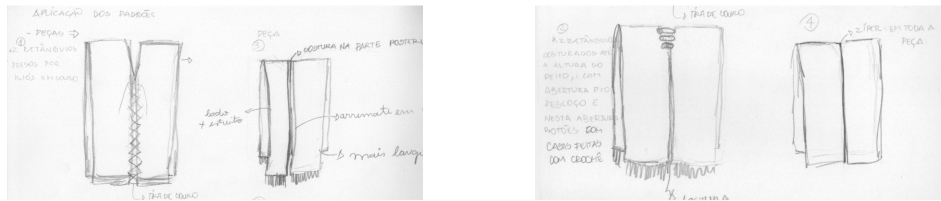 APLICAÇÃO DOS PADRÕES
- PEÇAS
①
2 RETÂNGULOS
POR
TIRA DE COURO
PEÇA
③
COSTURA NA PARTE POSTER
lado
+ estreito
arremate em
mais larg
TIRA DE COURO
②
2 RETÂNGULOS
COSTURADOS ATÉ
A ALTURA DO
PEITO, COM
ABERTURA P/O
PESCOÇO E
NESTA ABERTURA
BOTÕES COM
CASAS FEITAS
COM CROCHÊ
COSTURA
④
ZÍPER - EM TODA A
PEÇA